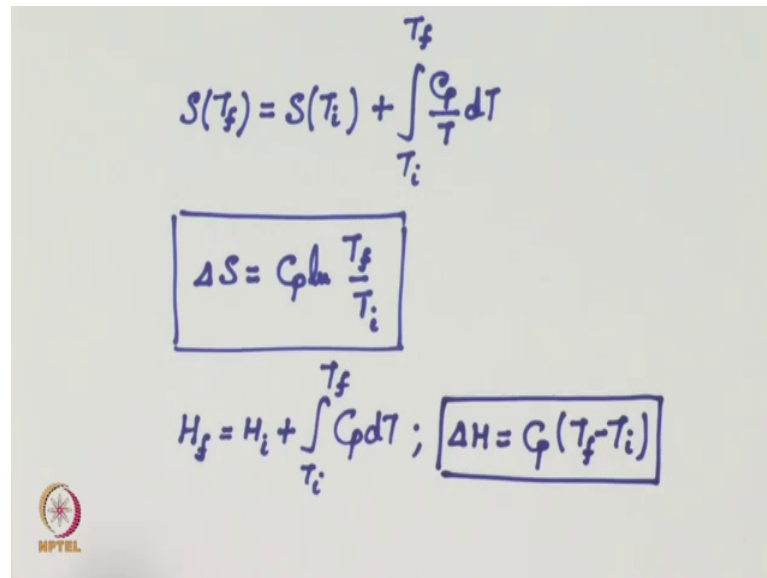 S(T_f) = S(T_i) + ∫_{T_i}^{T_f} C_p/T dT
ΔS = C_p ln T_f/T_i
H_f = H_i + ∫_{T_i}^{T_f} C_p dT ; ΔH = C_p (T_f - T_i)
NPTEL